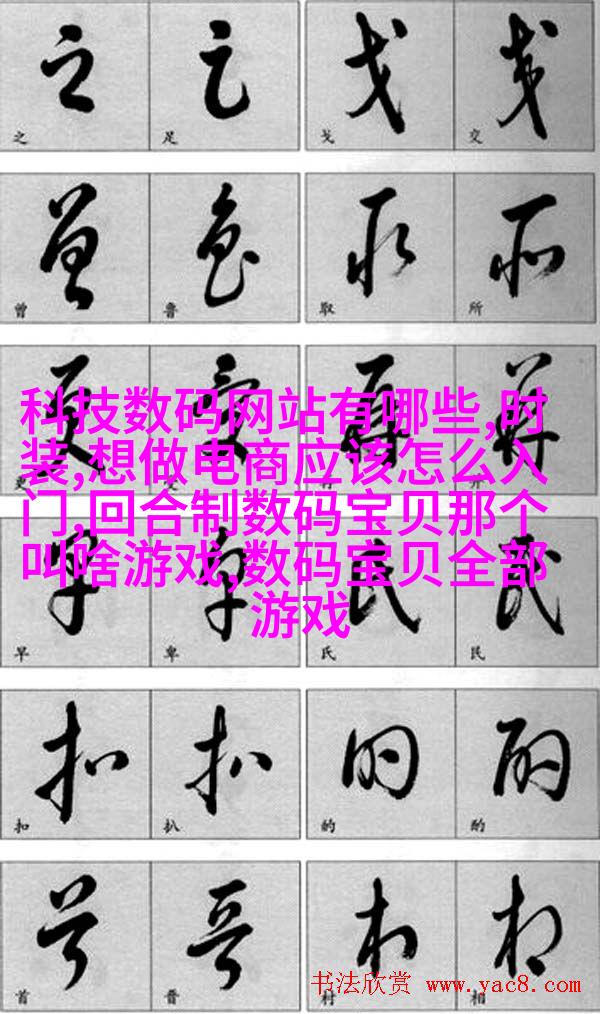 之 足 戈 交
曾 鲁 取 所
科技数码网站有哪些,时
装,想做电商应该怎么入
门,回合制数码宝贝那个
叫啥游戏,数码宝贝全部
游戏
更
早 卑 氏 民
扣 扒 的 酌
首 晋 村 相
书法欣赏 www.yac8.com